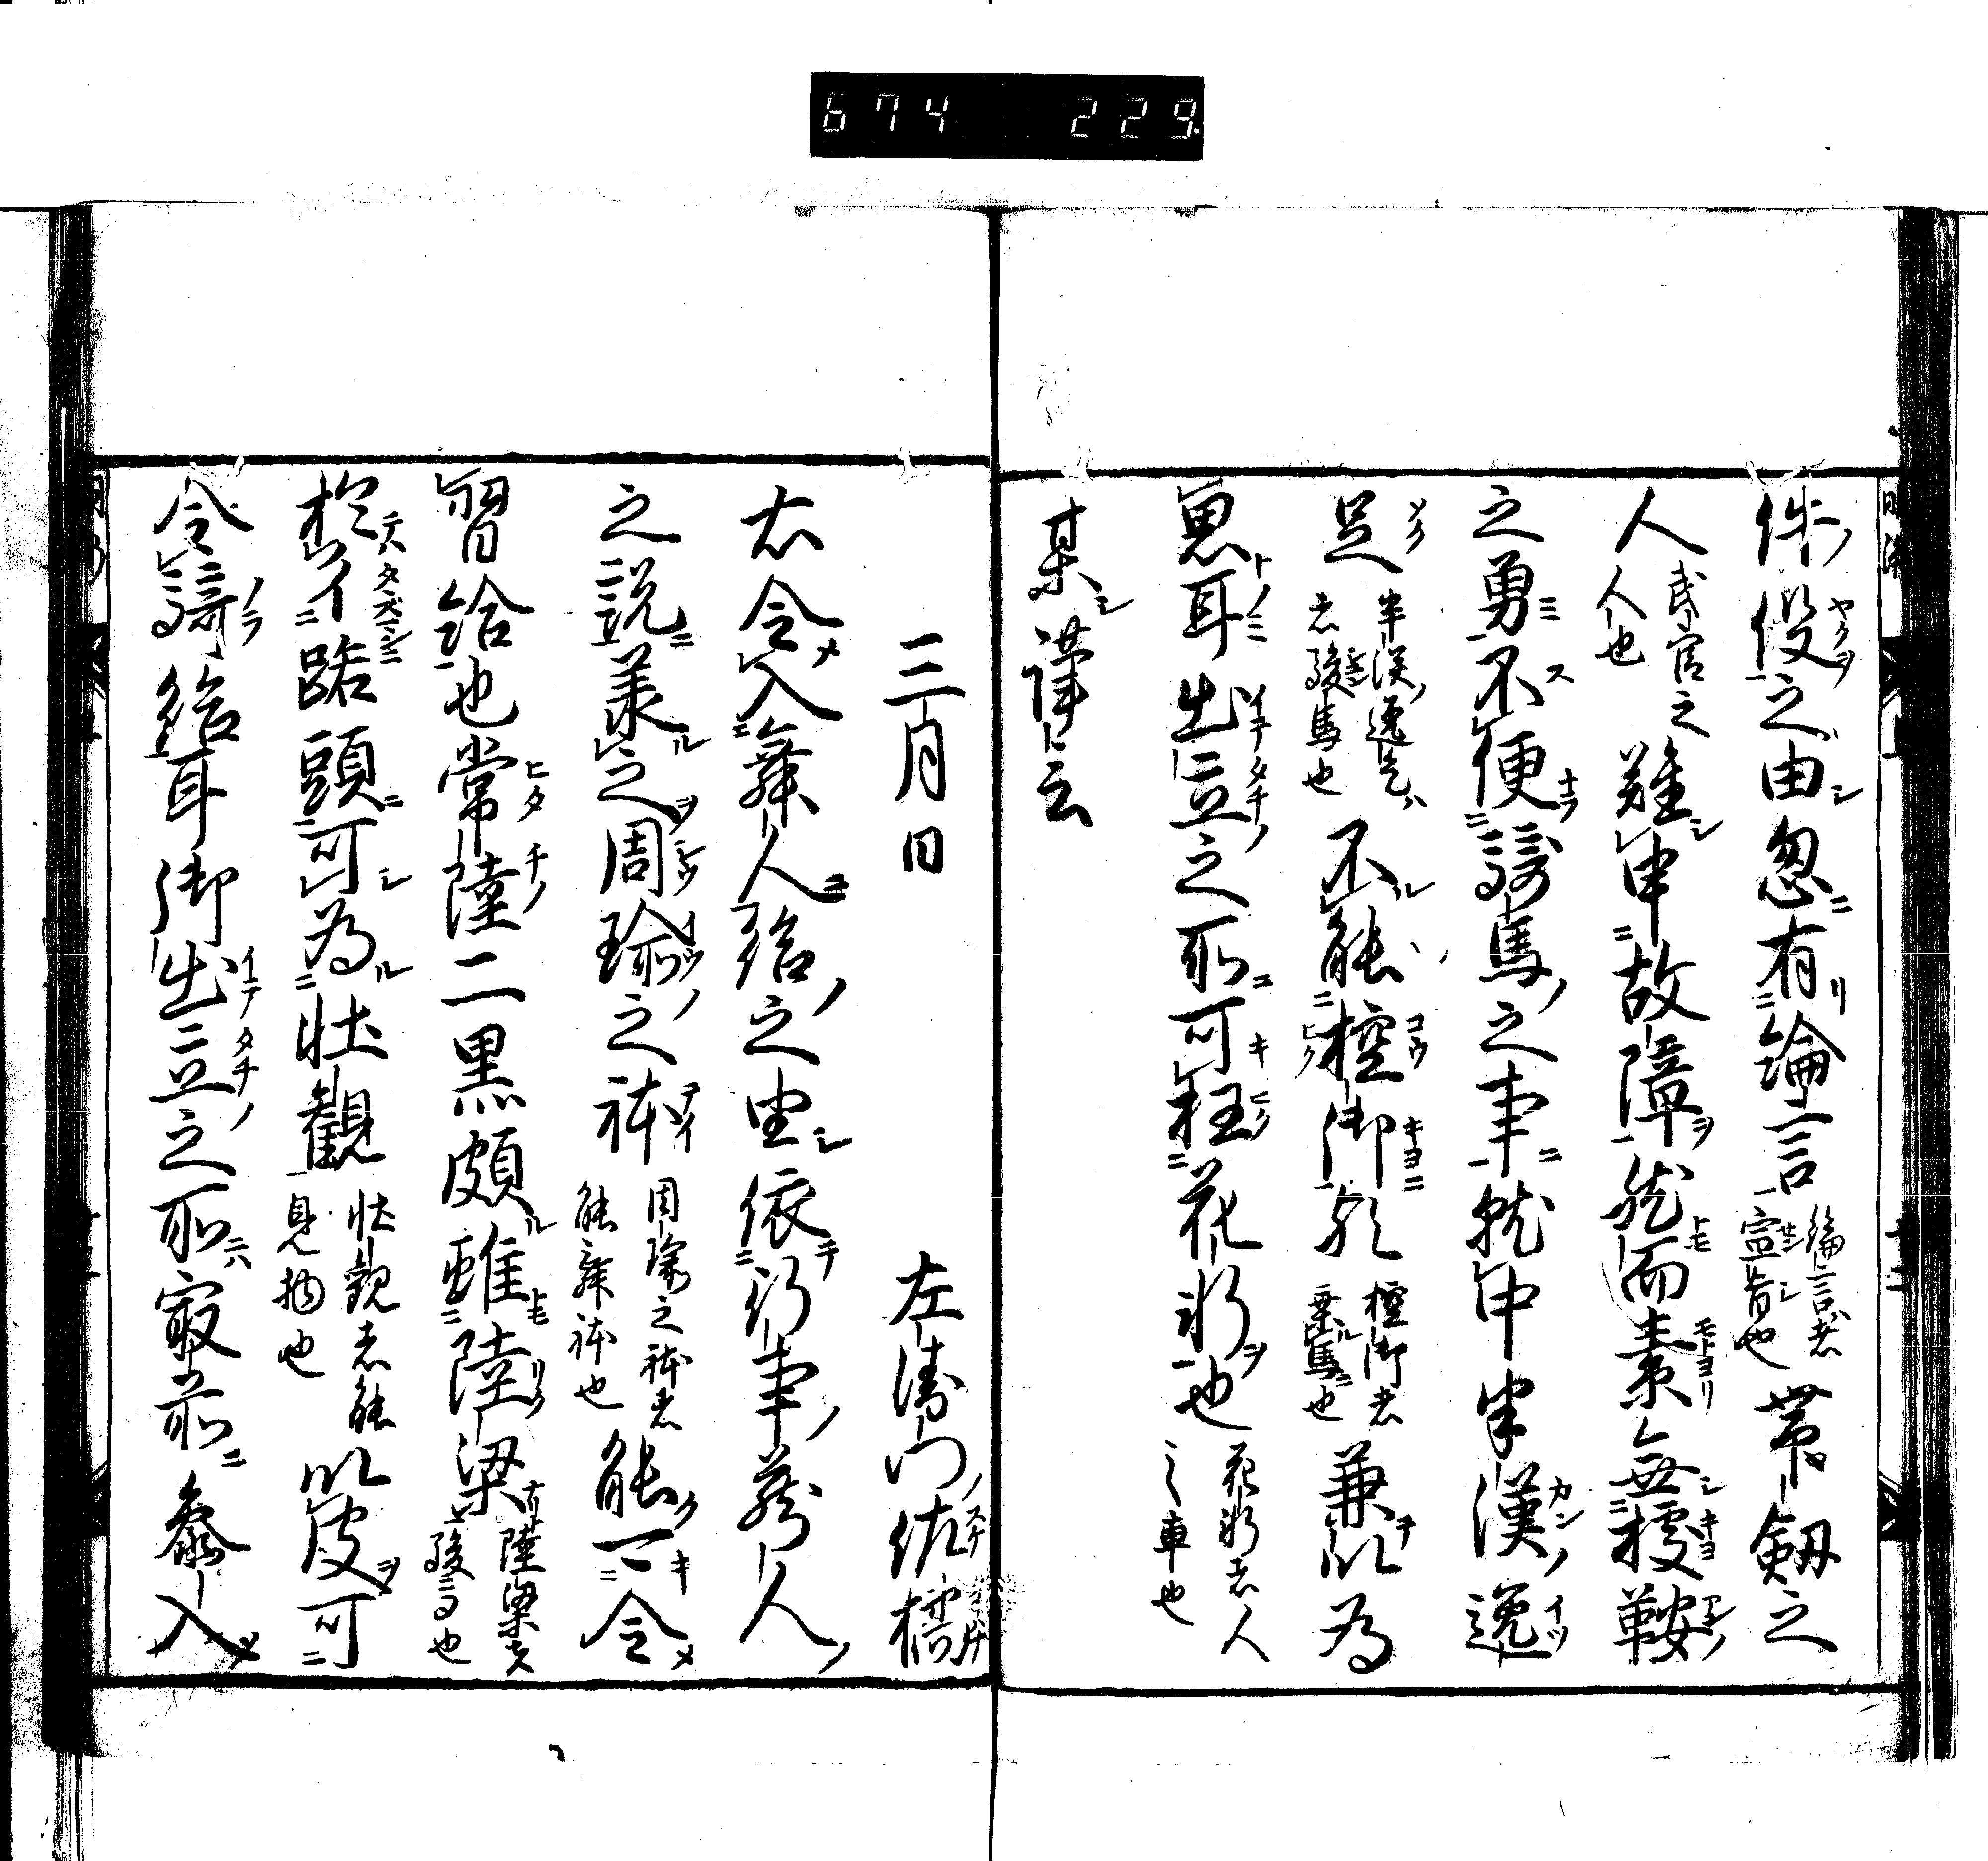 674 229
件役之由忽有綸言綸言者宣旨也帯劔之
人武官之人也難申故障然而素無據鞍
之勇不便騎馬之事就中半漢逸
足半漢逸足者駿馬也不能控御控御者乗馬也兼以為
思耳出立之所可枉花軒也花軒者人之車也
某謹言
三月日 左衛門佐橘
右令入舞人給之由依行事蔵人
之説承之周瑜之袂周瑜之袂者能舞袂也能可令
習給也常陸二黒頗雖陸梁陸梁者駿馬也
於踞頭可為壮観壮観者能見物也以皮可
令騎給耳御出立之所最前参入